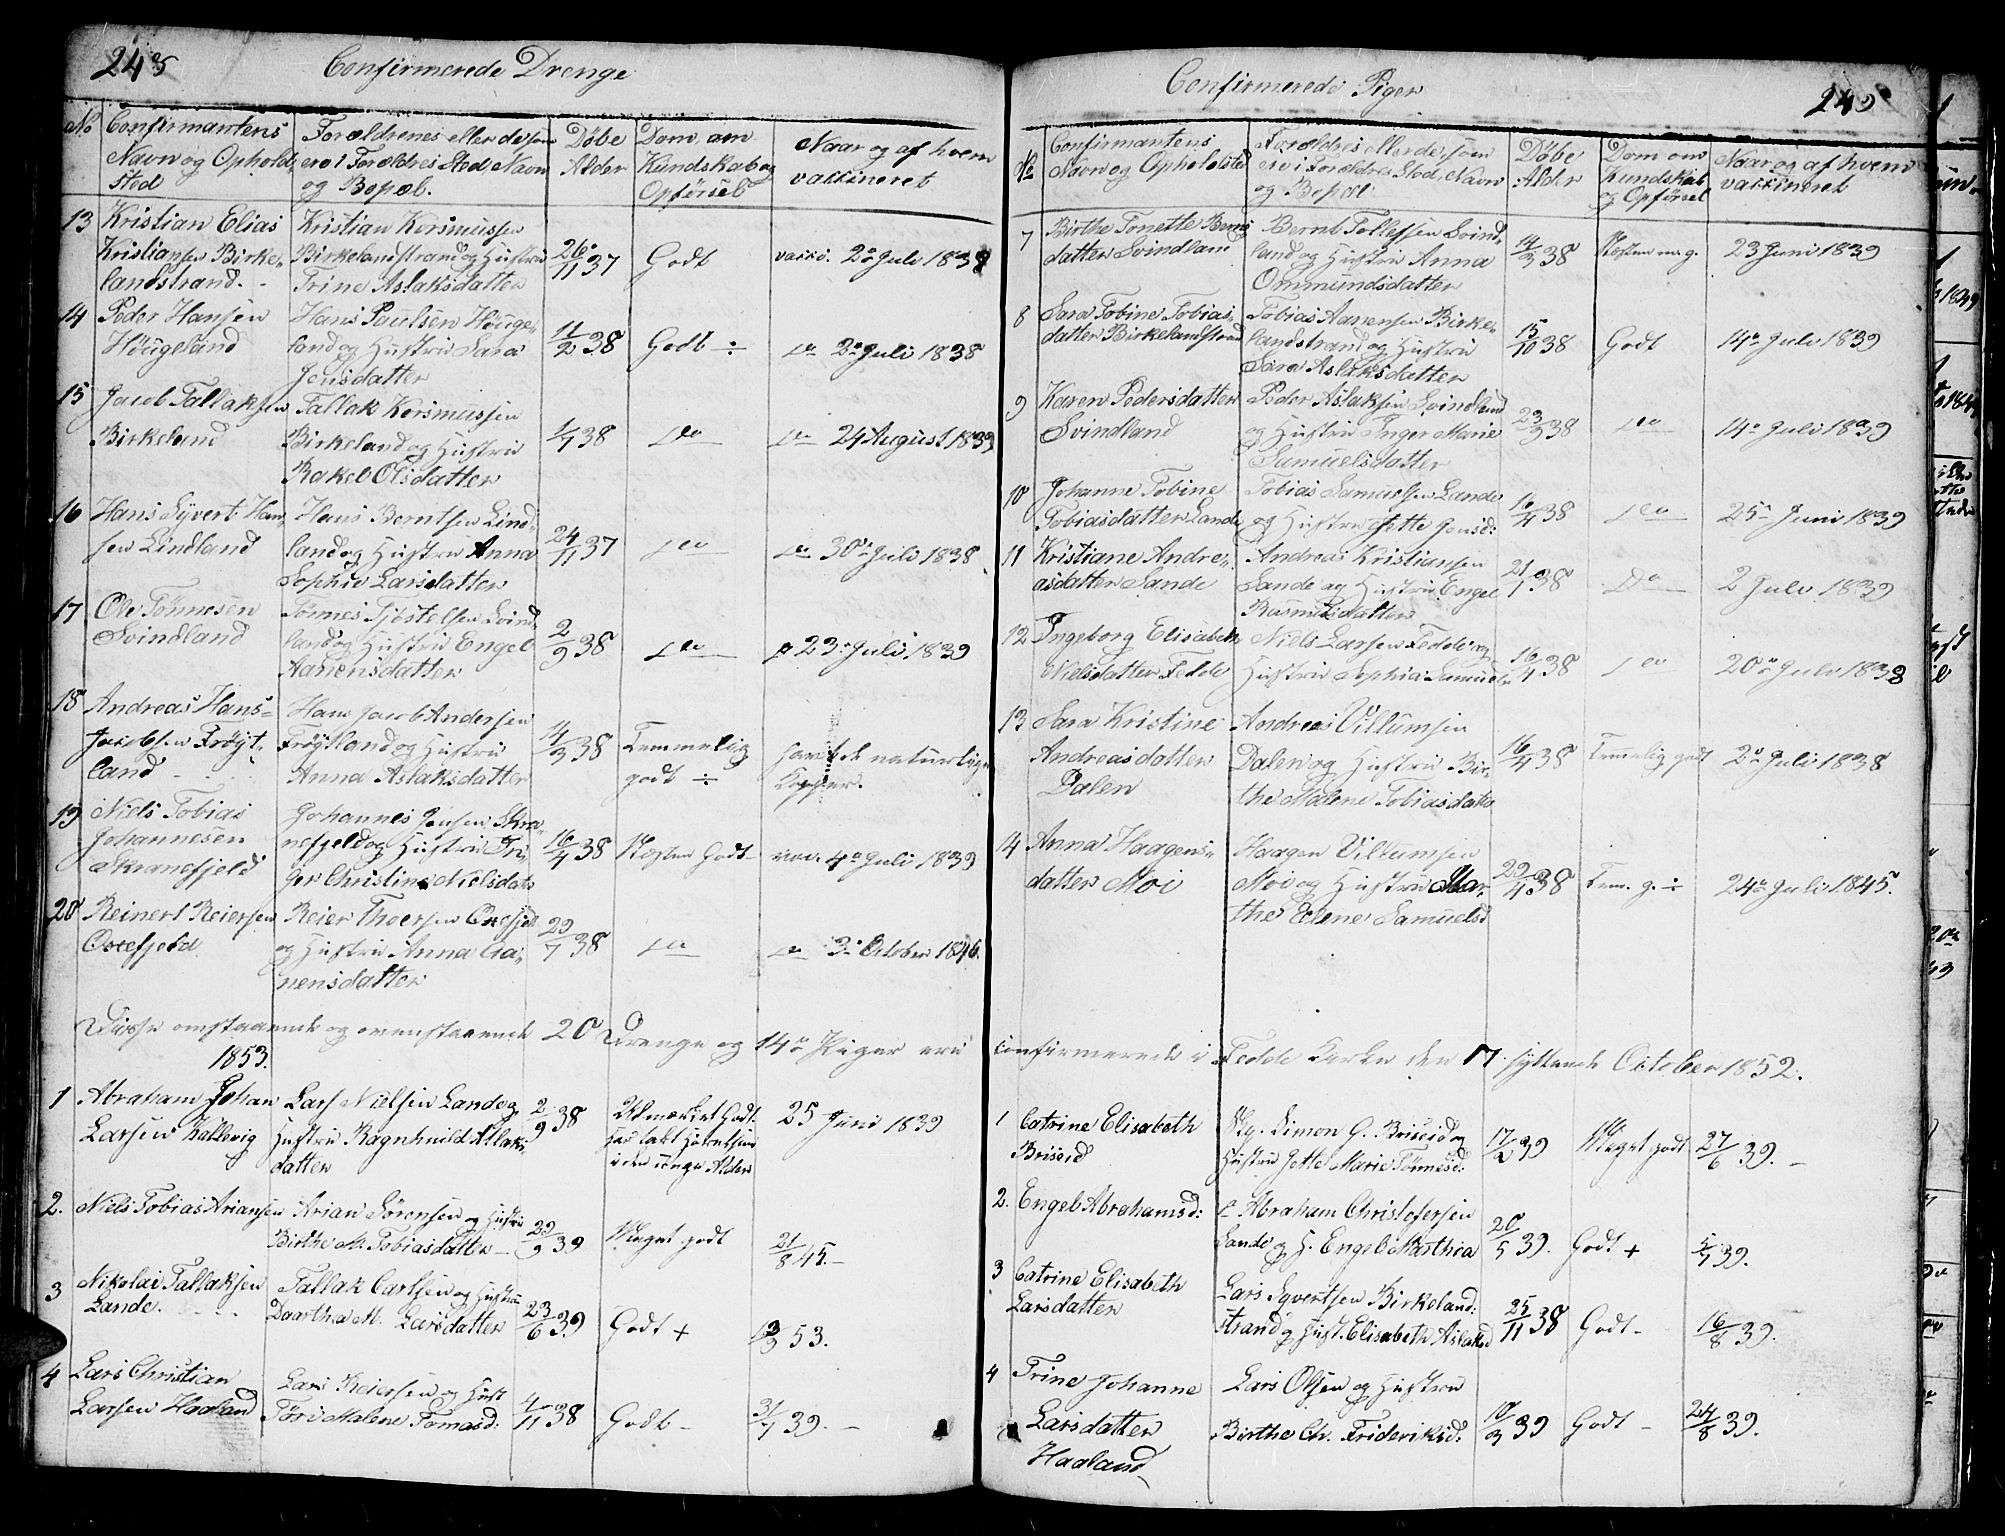 245
Confirmerede Drenge
No
Confirmantens
Navn og Ophold,
sted
Forældrenes eller de som
ere i Forældres Sted, Navn
og Bopæl.
Døbe
Alder
Dom, om
Kundskab og
Opførsel
Naar og af hvem
vaccineret
13
Kristian Elias
Kristiansen Birke-
landstrand.
Kristian Rersmussen
Birkelandstrand og Hustru
Trine Aslaksdatter
26/11 37
Godt
vacci. 2de Juli 1838
14
Peder Hansen
Høugeland
Hans Paulsen Høuge-
land og Hustru Sara
Jensdatter
11/2 38
Godt ÷
do 2de Juli 1838
15
Jacob Tallaksen
Birkeland
Tallak Rersmussen
Birkeland og Hustru
Rakel Olsdatter
1/7 38
do
do 24 August 1839
16
Hans Syvert Han,
sen Lindland
Hans Berntsen Lind-
land og Hustru Anna
Sophie Larsdatter
24/11 37
do
do 30te Juli 1838
17
Ole Tønnesen
Svindland
Tønnes Tjøstelsen Svind-
land og Hustru Engel
Aanensdatter
2/9 38
do
23 Juli 1839
18
Andreas Hans-
Jacobsen Frøyt-
land
Hans Jacob Andersen
Frøytland og Hustru
Anna Aslaksdatter
14/3 38
Temmelig
godt ÷
havt de naturlige
Kopper.
19
Niels Tobias
Johannesen
Skranefjeld
Johannes Jensen Skra-
nefjeld og Hustru In-
ger Christine Nielsdatr
16/4 38
Næsten Godt
vac. 4de Juli 1839
20
Reinert Reiersen
Osefjeld
Reier Thorsen Osefjeld
og Hustru Anna Aa-
nensdatter
29/7 38
do
do 3die October 1846.
Disse omstaaende og ovenstaaende 20 Drenge og 14 Piger ere
1853.
1
Abraham Johan
Larsen Kallevig
Lars Nielsen Lande og
Hustru Ragnhild Atlaks-
datter
2/9 38
Udmærket Godt.
i den unge Alder
25 Juni 1839
2.
Niels Tobias Ariansen
Arian Sørensen og Hustru
Birthe M. Tobiasdatter
29/9 39
Meget godt
21/8 45.
3
Nikolai Tallaksen
Lande.
Tallak Carlsen og Hustru
Daarthea M. Larsdatter
23/6 39
Godt +
13/3 53.
4
Lars Christian
Larsen Haaland
Lars Reiersen og Hust
Tøri Malene Tomasd:
4/11 38
Godt
31/7 39.
Confirmerede Piger
245
No
Confirmantens
Navn og Opholdsted
Forældres eller de, som
ere i Forældres Sted, Navn
og Bopæl
Døbe
Alder
Dom om
Kundskab
og Opførsel
Naar og af hvem
vaccineret
7
Birthe Tonette Bernts
datter Svindland
Bernt Tollefsen Svind-
land og Hustru Anna
Ommundsdatter
14/3 38
Næsten m. g.
23 Juni 1839
8
Sara Tobine Tobias-
datter Birkelandstrand
Tobias Aanensen Birke-
landstrand og Hustru
Sara Aslaksdatter
15/10 38
Godt
14de Juli 1839
9
Karen Pedersdatter
Svindland
Peder Aslaksen Svindland
og Hustru Inger Marie
Samuelsdatter
23/3 38
do
14de Juli 1839
10
Johanne Tobine
Tobiasdatter Lande
Tobias Samuelsen Lande
og Hustru Jette Jensd:
16/4 38
do
25 Juni 1839
11
Kristiane Andre-
asdatter Lande
Andreas Kristiansen
Lande og Hustru Engel
Rasmusdatter
21/1 38
Do
2 Juli 1839
12
Ingeborg Elisabeth
Nielsdatter Fedde
Niels Larsen Fedde og
Hustru Sophia Samuelsd
16/4 38
do
20de Juli 1838
13
Sara Kristine
Andreasdatter
Dalen
Andreas Villumsen
Dalen og Hustru Bir-
the Malene Tobiasdatr
16/4 38
Temelig godt
2de Juli 1838
14
Anna Haagens-
datter Moi
Haagen Villumsen
Moi og Hustru Mar-
the Elene Samuelsd
29/4 38
Tem. g. ÷
24de Juli 1845.
confirmerede i Fedde Kirke den 17 syttende October 1852.
1
Catrine Elisabeth
Briseid
Simon G. Briseid og
Hustru Jette Marie Tønnesd:
17/2 39
Meget godt
27/6 39.
2.
Engel Abrahamsd:
Abraham Christofersen
Lande og H. Engel Marthia
20/5 39.
Godt +
5/7 39.
3
Catrine Elisabeth
Larsdatter
Lars Syvertsen Birkeland:
strand og Hust. Elisabeth Aslaksd
25/11 38
Godt
16/8 39.
4
Trine Johanne
Larsdatter
Haaland
Lars Olsen og Hustru
Birthe Ch. Frideriksd:
10/3 39
Godt
24/8 39.